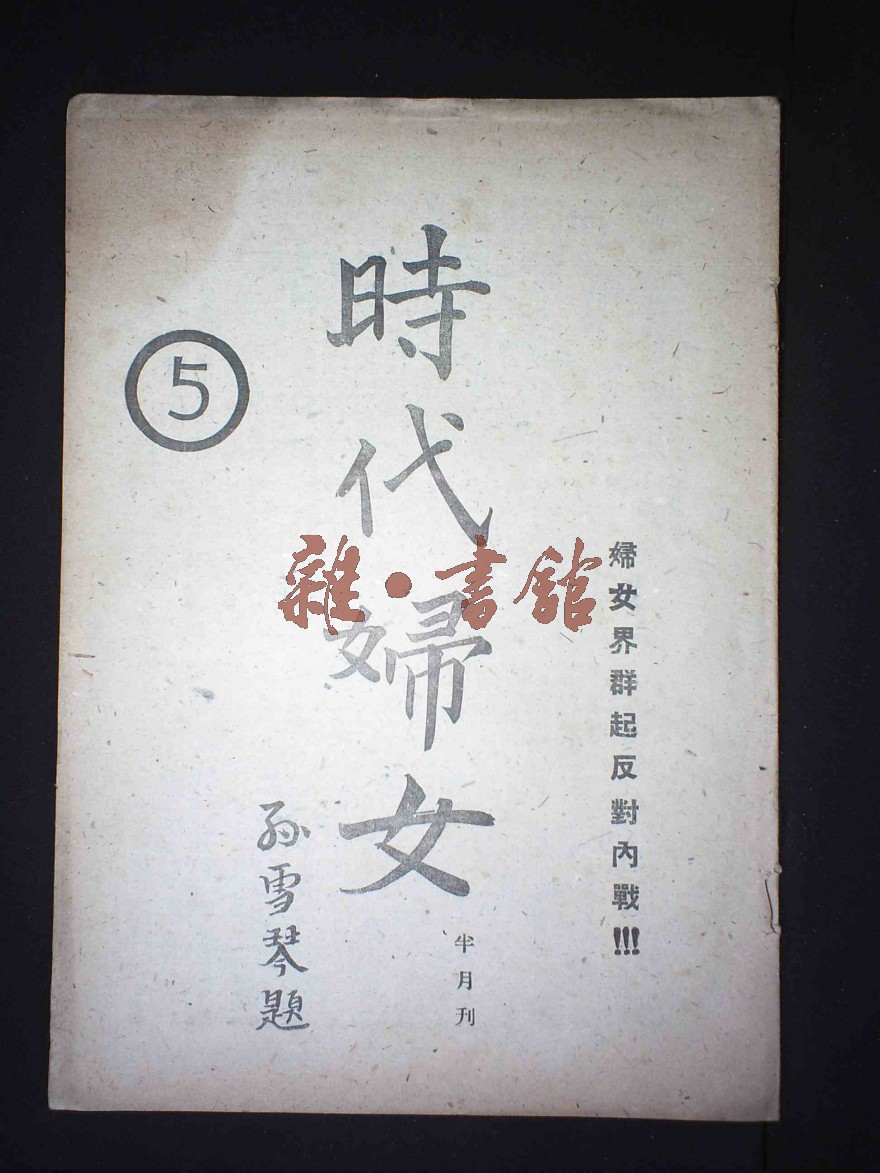 婦女界群起反對內戰!!!
時代婦女
半月刊
孫雪琴題
5
雜·書館